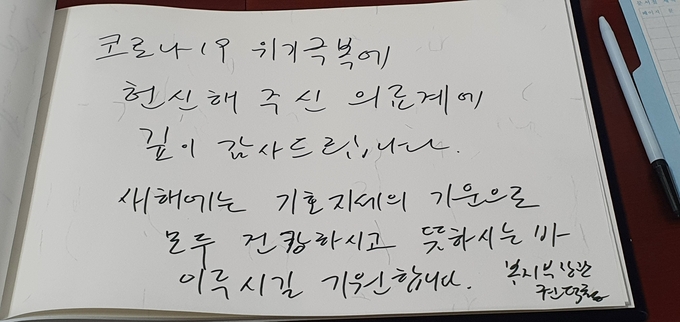 코로나19 위기극복에
헌신해 주신 의료계에
깊이 감사드립니다.
새해에는 기호지세의 기운으로
모두 건강하시고 뜻하시는 바
이룩시길 기원합니다.
복지부장관
권덕철